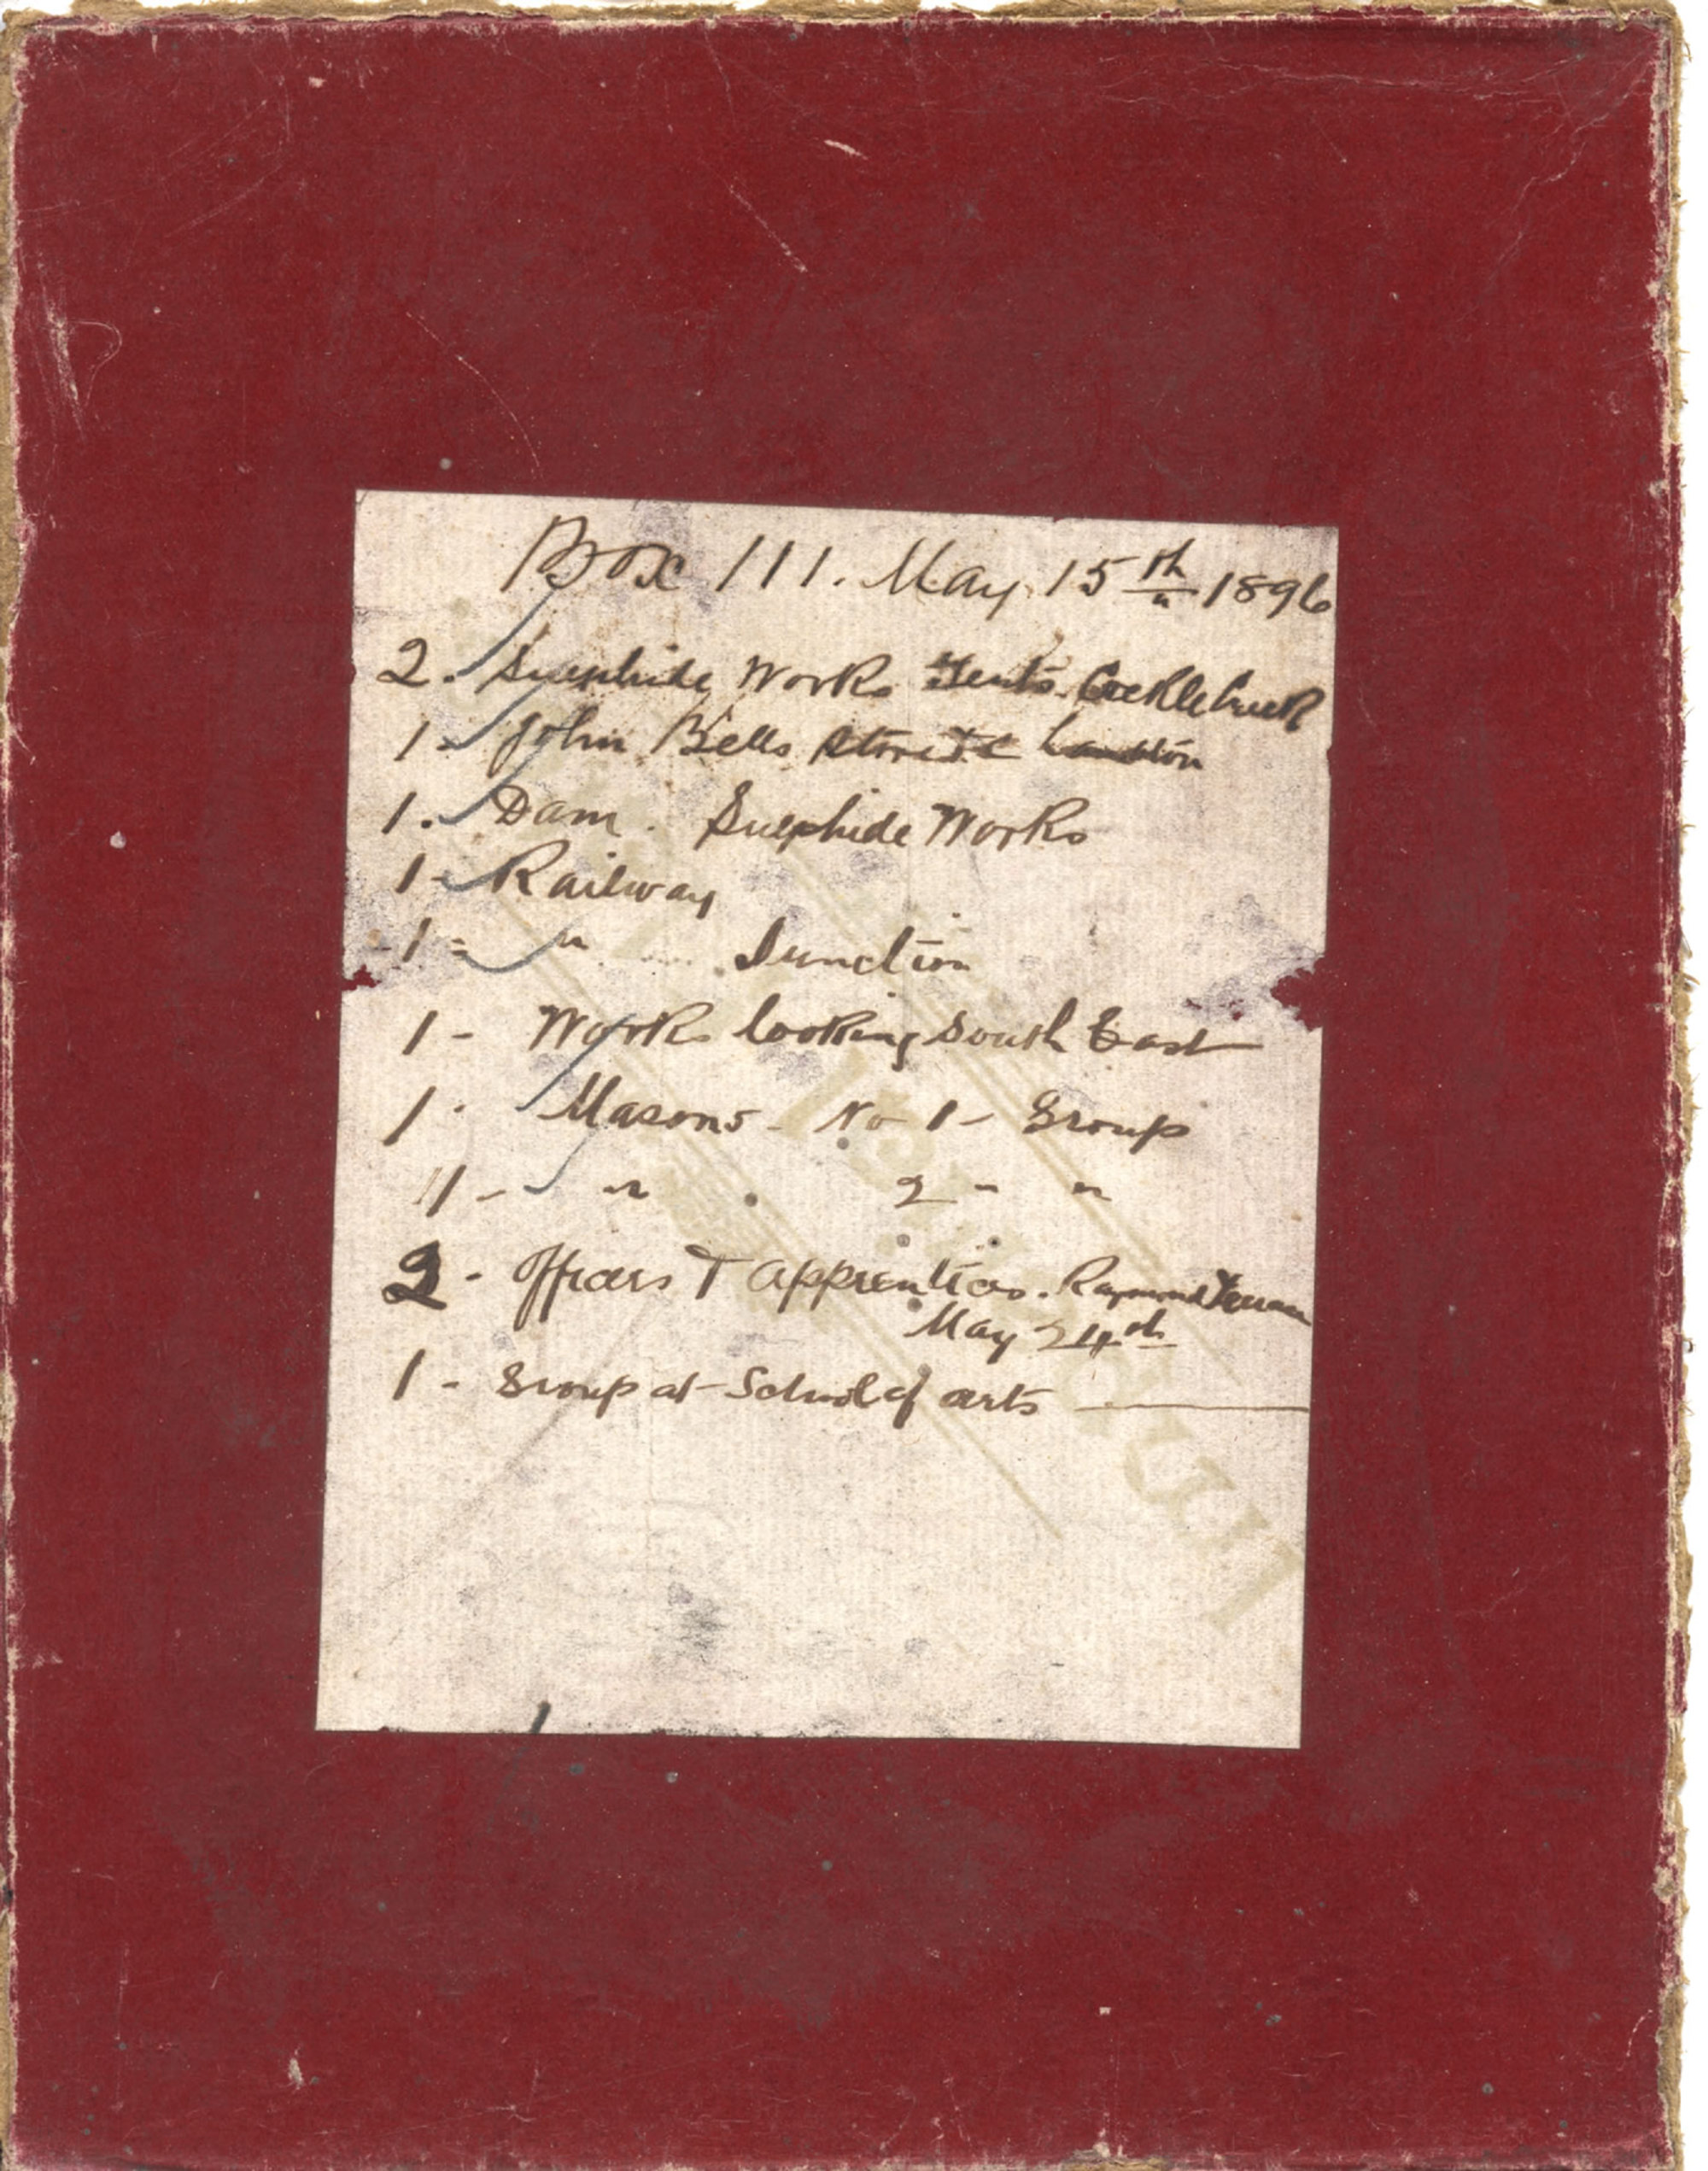 Box 111. May 15th 1896
2. Sulphide Works Tents. Cockle Creek
1 - John Bells Store
1. Dam. Sulphide Works
1 - Railway
1 - " Junction
1 - Works looking South East
1. Masons - No 1 - Group
1 - " 2 - "
2 - Officers & apprentices. Raymond Terrace
May 24th
1 - Group at School of arts